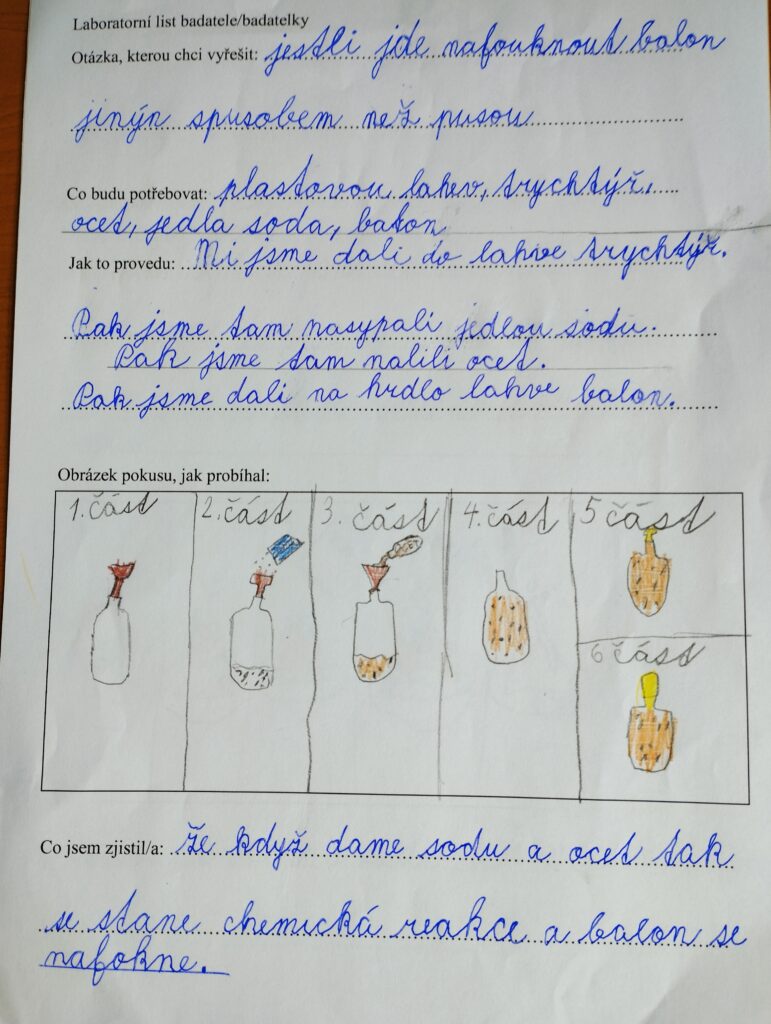 Laboratorní list badatele/badatelky
Otázka, kterou chci vyřešit: jestli jde nafouknout balon
jinýn spusobem než pusou
Co budu potřebovat: plastovou lahev, trychtýř,
ocet, jedla soda, balon
Jak to provedu: Mi jsme dali do lahve trychtýř.
Pak jsme tam nasypali jedlou sodu.
Pak jsme tam nalili ocet.
Pak jsme dali na hrdlo lahve balon.
Obrázek pokusu, jak probíhal:
1. část 2. část 3. část 4. část 5 část
6 část
Co jsem zjistil/a: že když dame sodu a ocet tak
se stane chemická reakce a balon se
nafokne.